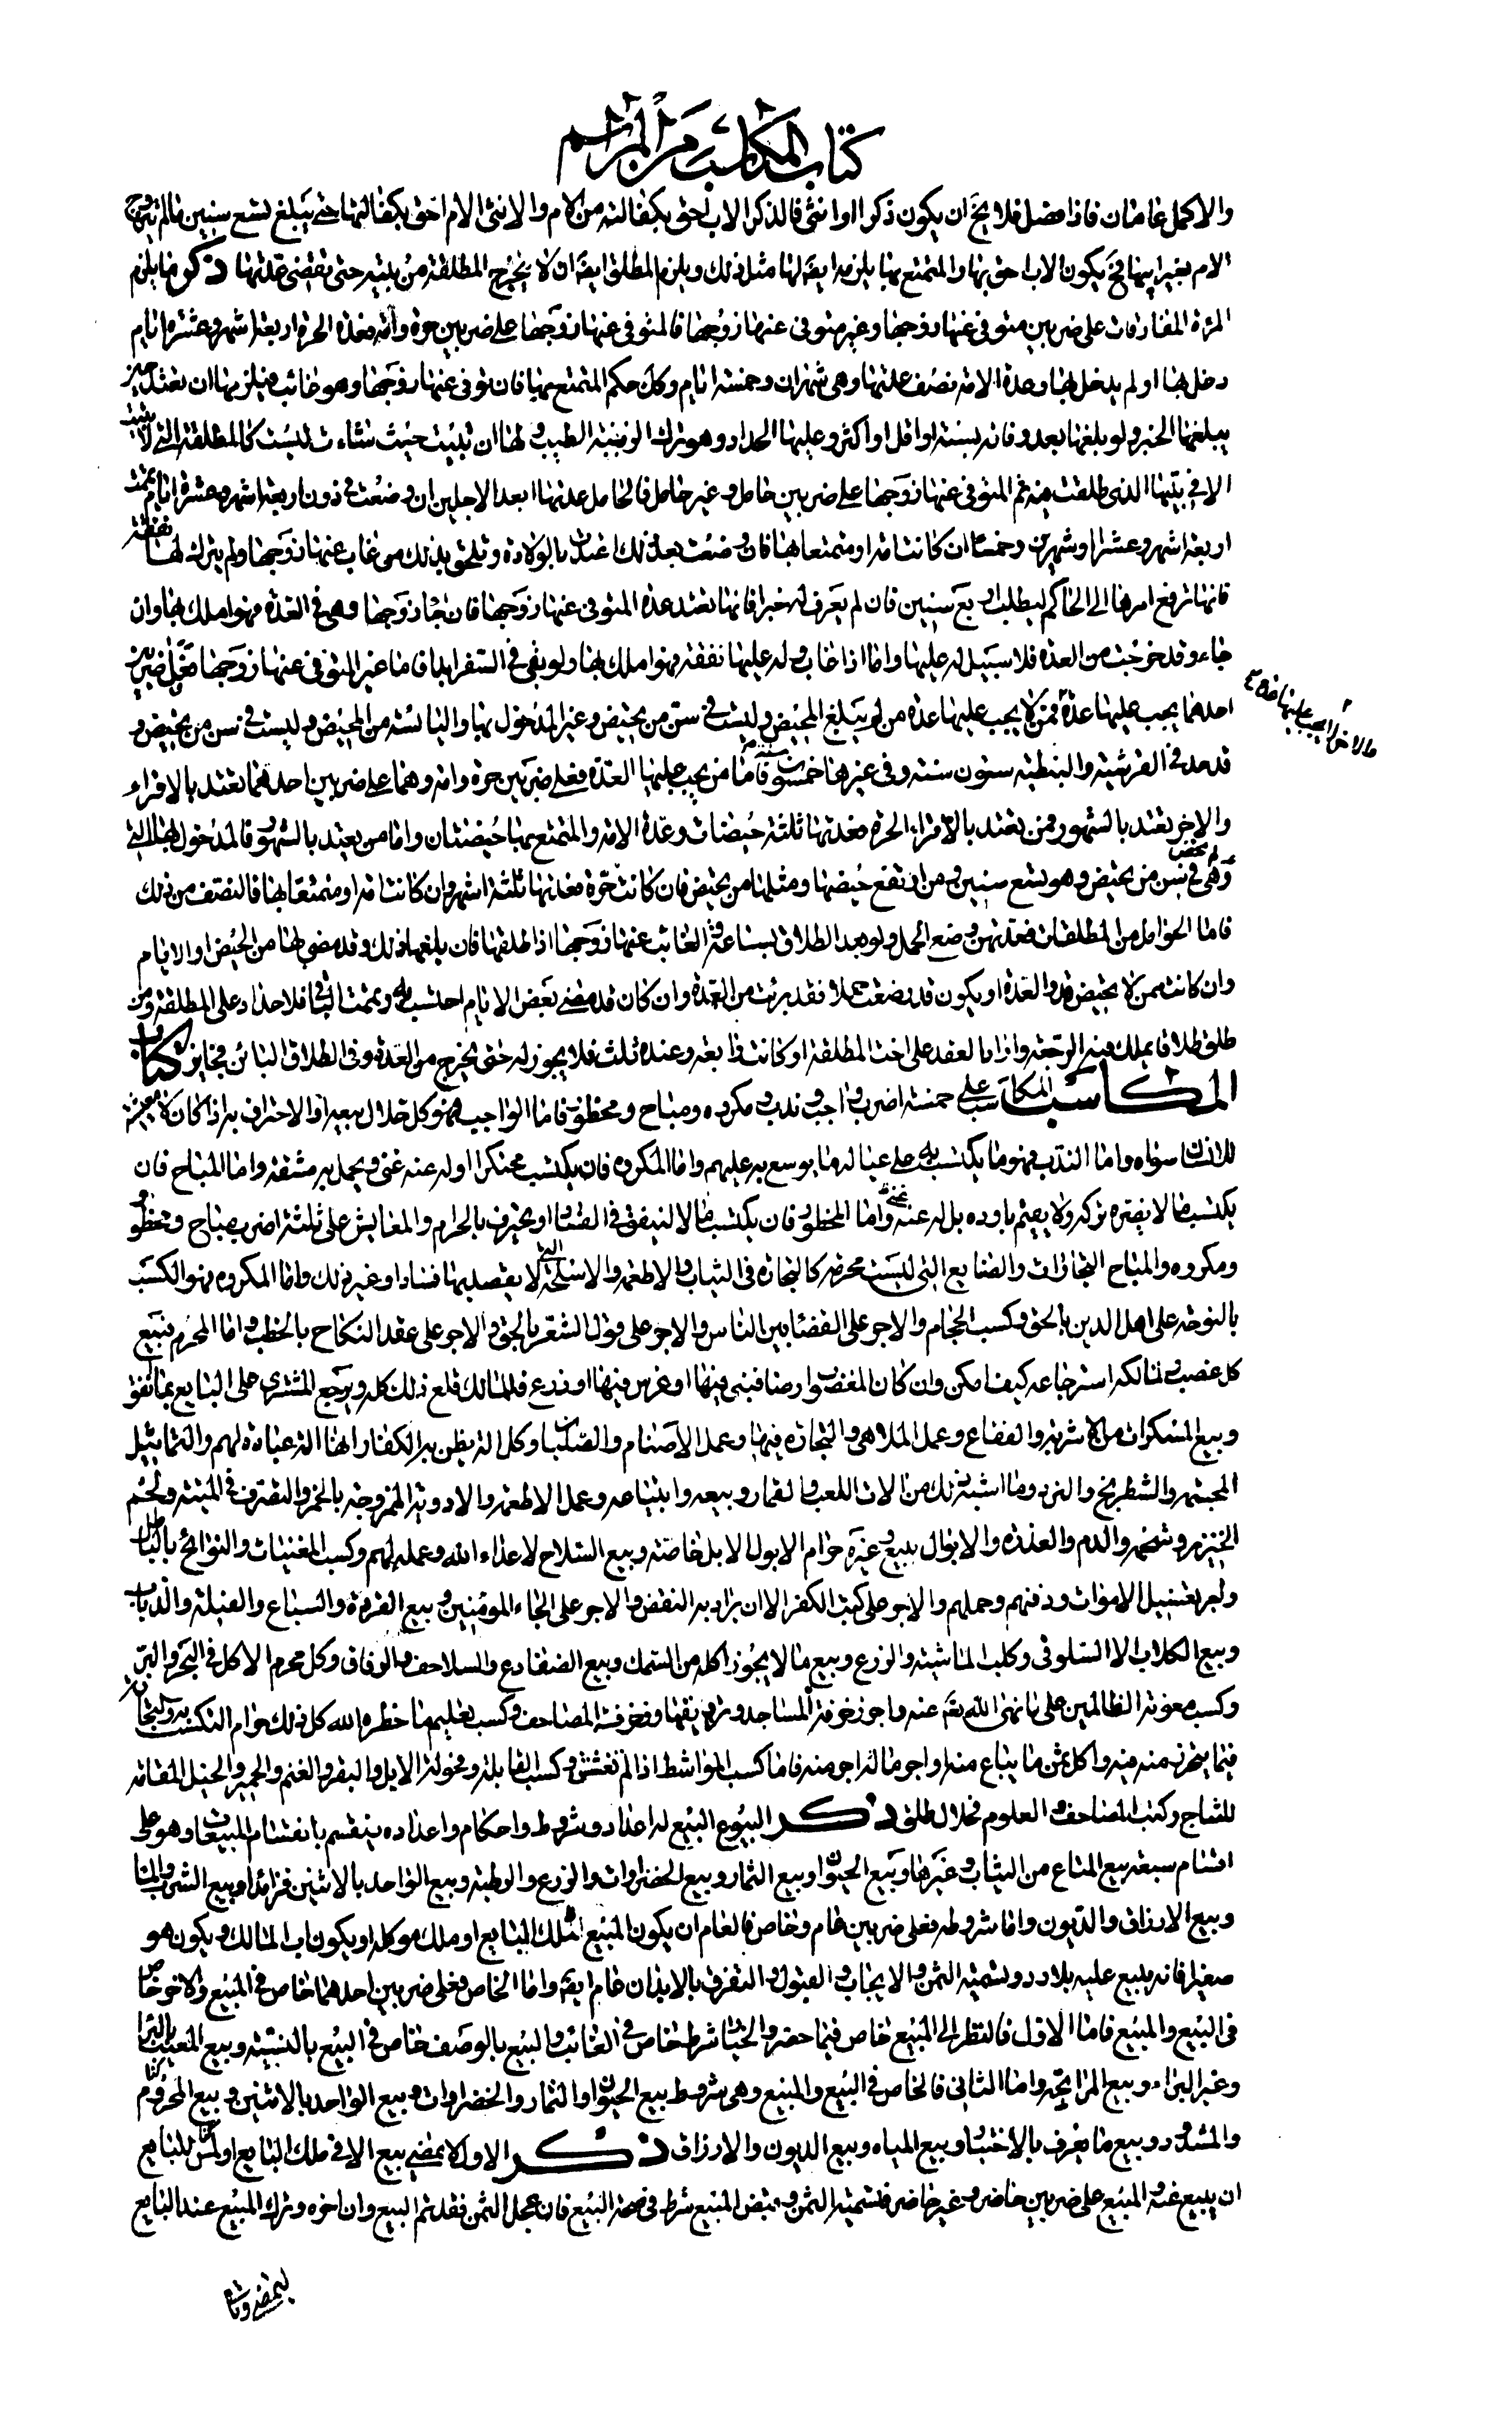 كتاب المكاسب من المراسم
والاكمل عامان فاذا فصل فلا يخ ان يكون ذكرا او انثى فالذكر الاب احق بكفالته من الام والانثى الام احق بكفالتها حتى يبلغ تسع سنين مالم تتزوج
الام بغير ابيها فح يكون الاب احق بها والمتمتع بها يلزمه ايضا لها مثل ذلك ويلزم المطلق ايضا ان لا يخرج المطلقة من بيته حتى تقضى عدتها ذكر ما يلزم
المرأة المفارقات على ضربين متوفى عنها زوجها وغير متوفى عنها زوجها فالمتوفى عنها زوجها على ضربين حرة وامة فعدة الحرة اربعة اشهر وعشرة ايام
دخل بها او لم يدخل بها وعدة الامة نصف عدتها وهى شهران وخمسة ايام وكك حكم المتمتع بها فان توفى عنها زوجها وهو غائب فيلزمها ان تعتد حين
يبلغها الخبر ولو بلغها بعد وفاته بسنة او اقل او اكثر وعليها الحداد وهو ترك الزينة الطيب ولها ان تبيت حيث شاءت ليست كالمطلقة التى لا تبيت
الا فى بيتها الذى طلقت فيه ثم المتوفى عنها زوجها على ضربين حامل وغير حامل فالحامل عدتها ابعد الاجلين ان وضعت فى دون اربعة اشهر وعشرة ايام تممت
اربعة اشهر وعشرا وشهرين وخمسا ان كانت امة او متمتعا بها فان وضعت بعد ذلك اعتدت بالولادة وتلحق بذلك من غاب عنها زوجها ولم يترك لها نفقة
فانها ترفع امرها الى الحاكم ليطلب اربع سنين فان لم يعرف له خبر فانها تعتد عدة المتوفى عنها زوجها فان جاء زوجها وهى فى العدة فهو املك بها وان
جاء وقد خرجت من العدة فلا سبيل له عليها واما اذا غاب وله عليها نفقة فهو املك بها ولو بقى فى السفر ابدا فاما غير المتوفى عنها زوجها فعلى ضربين
احدهما يجب عليها عدة فمن لا يجب عليها عدة من لم يبلغ المحيض وليست فى سن من يحيض وغير المدخول بها واليائسة من المحيض وليست فى سن من يحيض و
والاخر لا يجب عليها عدة
قد حد فى القرشية والنبطية ستون سنة وفى غيرها خمسون سنة فاما من يجب عليها العدة فعلى ضربين حرة وامة وهما على ضربين احدهما تعتد بالاقراء
والاخر يعتد بالشهور فمن يعتد بالاقراء الحرة فعدتها ثلثة حيضات وعدة الامة والمتمتع بها حيضتان واما من يعتد بالشهور فالمدخول بها التى
لم تحض
وهى فى سن من يحيض وهو تسع سنين ومن ارتفع حيضها ومثلها من يحيض فان كانت حرة فعدتها ثلثة اشهر وان كانت امة او متمتعا بها فالنصف من ذلك
فاما الحوامل من المطلقات فعدتهن وضع الحمل ولو بعد الطلاق بساعة والغائب عنها زوجها اذا طلقها فان بلغها ذلك وقد مضى لها من الحيض او الايام
وان كانت ممن لا يحيض قدر العدة او يكون قد وضعت حملا فقد برئت من العدة وان كان قد مضى بعض الايام احتسب به وتممت الباقى فلا حداد على المطلقة ومن
طلق طلاقا يملك فيه الرجعة واراد العقد على اخت المطلقة او كانت رابعة وعنده ثلث فلا يجوز له حتى يخرج من العدة وفى الطلاق البائن فجايز كتاب
المكاسب المكاسب على خمسة اضرب واجب وندب ومكروه ومباح ومحظور فاما الواجب فهو كل حلال بيعه او الاحتراف به اذا كان لا معيشة
للانسان سواه واما الندب فهو ما يكتسب به على عياله ما يوسع به عليهم واما المكروه فان يكتسب محتكرا او له عنه غنى ويحمل به مشقة واما المباح فان
يكتسب ما لا يضره تركه ولا يقيم باوده بل له عنه غنى واما المحظور فان يكتسب مالا لينفق فى الفساد او يحترف بالحرام والمعايش على ثلثة اضرب مباح ومحظور
ومكروه والمباح التجارات والصنايع التى ليست محرمة كالتجارة فى الثياب والاطعمة والاسلحة التى لا يقصد بها فسادا وغير ذلك واما المكروه فهو الكسب
بالنوحة على اهل الدين بالحق وكسب الحجام والاجر على القضاء بين الناس والاجر على قول الشعر بالحق والاجر على عقد النكاح بالخطب واما المحرم فبيع
كل غصب ولمالكه استرجاعه كيف امكن وان كان المغصوب ارضا فبنى فيها او غرس فيها او زرع فللمالك قلع ذلك كله ويرجع المشترى على البايع بما انفق
وبيع المسكرات من الاشربة والفقاع وعمل الملاهى والتجارة فيها وعمل الاصنام والصلبان وكل الة يظن بها الكفار انها الة عبادة لهم والتماثيل
المجسمة والشطرنج والنرد وما اشبه ذلك من الات اللعب والقمار وبيعه وابتياعه وعمل الاطعمة والادوية الممزوجة بالخمر والتصرف فى الميتة ولحم
الخنزير وشحمه والدم والعذرة والابوال ببيع وغيره حرام الا بول الابل خاصة وبيع السلاح لاعداء الله وعمله لهم وكسب المغنيات والنوائح بالباطل
واجر تغسيل الاموات ودفنهم وحملهم والاجر على كتب الكفر الا ان يراد به النقض والاجر على هجاء المؤمنين وبيع القردة والسباع والفيلة والذئاب
وبيع الكلاب الا السلوقى وكلب الماشية والزرع وبيع ما لا يجوز اكله من السمك وبيع الضفادع والسلاحف والوقاق وكل محرم الاكل فى البحر والبر
وكسب معونة الظالمين على ما نهى الله تعالى عنه واجر زخرفة المساجد وتزويقها وزخرفة المصاحف وكسب تعليم ما حظره الله كل ذلك حرام التكسب به والتجارة
فيما يتجر منه فيه واكل ثمن ما يباع منه واجر ما له اجر منه فاما كسب المواشط اذا لم تغشش وكسب القابلة وفحولة الابل والبقر والغنم والحمير والخيل المقامة
للنتاج وكتب المصاحف والعلوم فحلال طلق ذكر البيوع البيع له اعداد وشروط واحكام واعداده ينقسم بانقسام المبيعات وهو على
اقسام سبعة بيع المتاع من الثياب وغيرها وبيع الحيوان وبيع الثمار وبيع الخضراوات والزرع والرطبة وبيع الواحد بالاثنين فزائدا وبيع الشرب والماء
وبيع الارزاق والديون واما شروطه فعلى ضربين عام وخاص فالعام ان يكون المبيع ملك البايع او ملك موكله او يكون اب المالك ويكون هو
صغيرا فانه يبيع عليه بلا رد وتسمية الثمن والايجاب والقبول والتفرق بالابدان عام ايضا واما الخاص فعلى ضربين احدهما خاص فى المبيع والاخر خاص
فى البيع والمبيع فاما الاول فالنظر الى المبيع خاص فيما حضر والخيار شرط خاص فى الغائب والبيع بالوصف خاص فى البيع بالنسيئة وبيع المعيب بالبراء
وغير البراء وبيع المرابحة واما الثانى فالخاص فى البيع والمبيع وهى شروط بيع الحيوان والثمار والخضراوات وبيع الواحد بالاثنين وبيع المحزوم
والمشدود وبيع ما يعرف بالاختبار وبيع المياه وبيع الديون والارزاق ذكر الاول لا يمضى بيع الا فى ملك البايع او لمن للبايع
ان يبيع عنه والمبيع على ضربين حاضر وغير حاضر فتسمية الثمن وقبض المبيع شرط فى صحة البيع فان عجل الثمن فقد تم البيع وان اخره وترك المبيع عند البايع
ليمضى وياتى